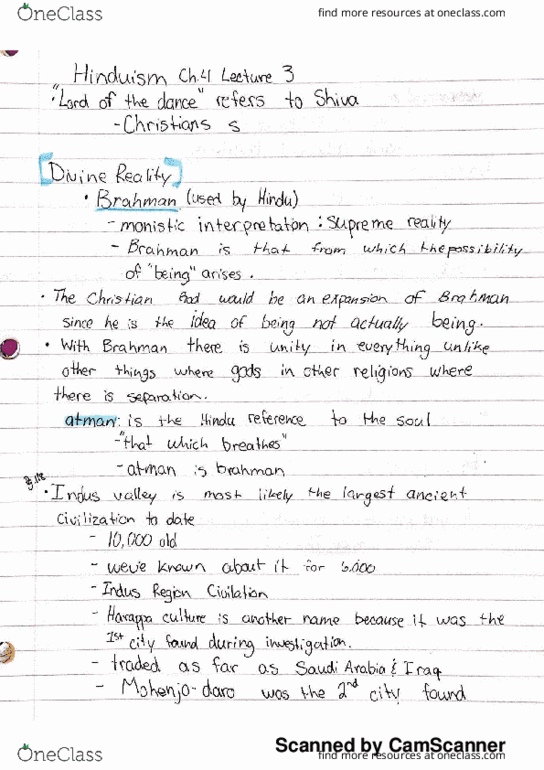 OneClass
find more resources at oneclass.com
Hinduism Ch.4 Lecture 3
• "Lord of the dance" refers to Shiva
- Christians s
[Divine Reality]
• Brahman (used by Hindu)
- monistic interpretation : Supreme reality
- Brahman is that from which the possibility
of "being" arises.
• The Christian God would be an expansion of Brahman
since he is the idea of being not actually being.
• With Brahman there is unity in everything unlike
other things where gods in other religions where
there is separation.
atman: is the Hindu reference to the soul
- "that which breathes"
- atman is brahman
• Indus valley is most likely the largest ancient
civilization to date
- 10,000 old
- we've known about it for
- Indus Region Civilation
- Harappa culture is another name because it was the
1st city found during investigation.
- traded as far as Saudi Arabia & Iraq
- Mohenjo-daro was the 2nd city found
Scanned by CamScanner
OneClass
find more resources at oneclass.com